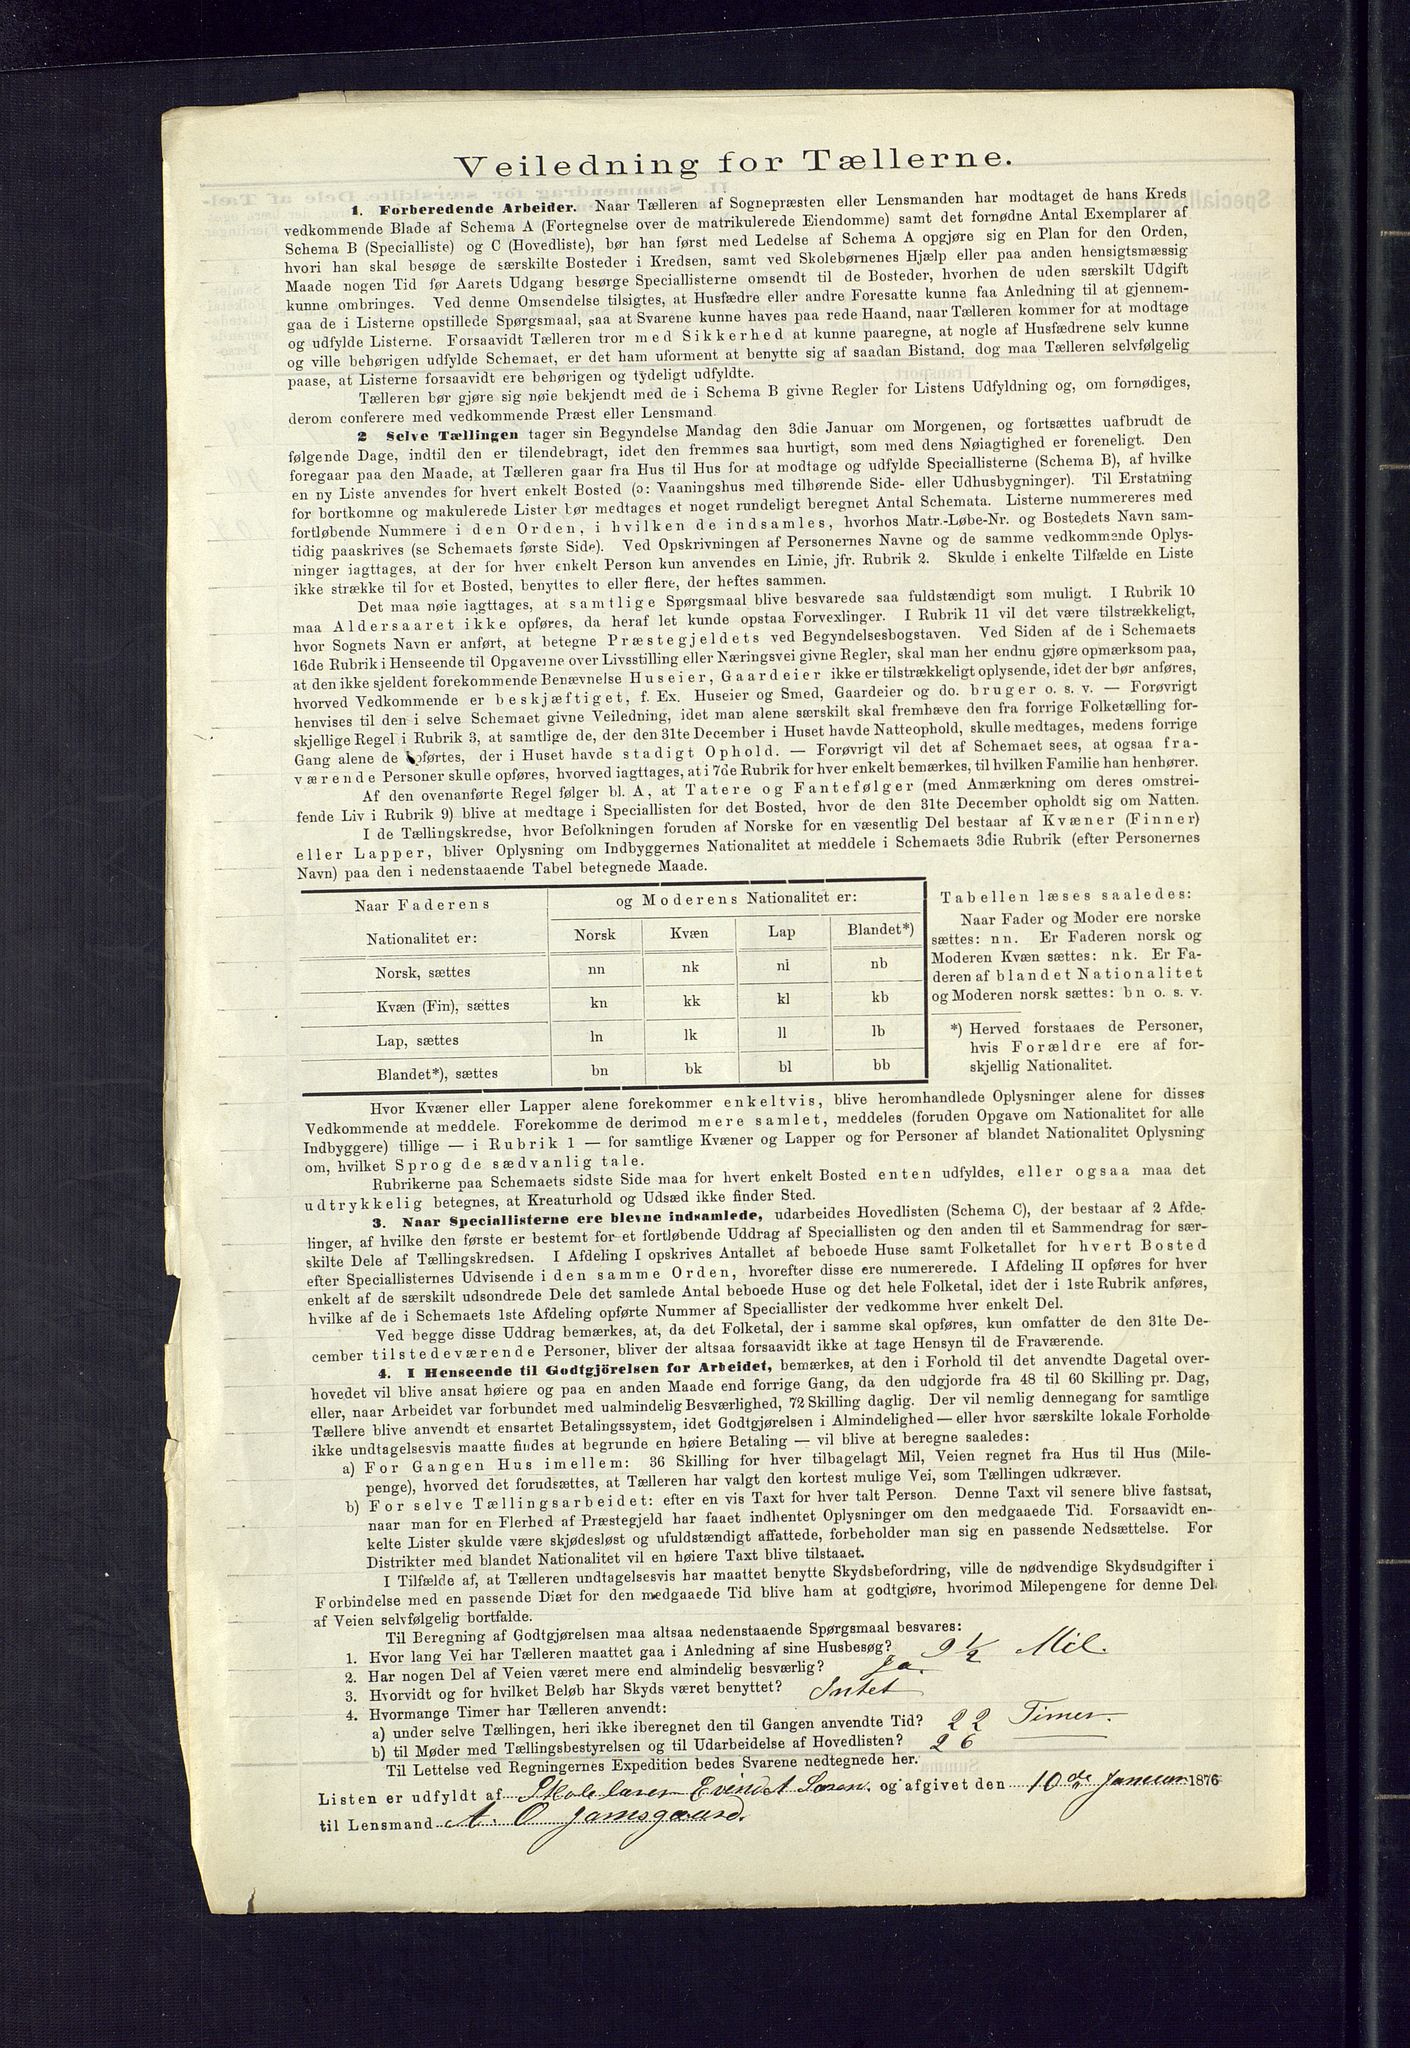 Veiledning for Tællerne.
1. Forberedende Arbeider. Naar Tælleren af Sognepræsten eller Lensmanden har modtaget de hans Kreds
vedkommende Blade af Schema A (Fortegnelse over de matrikulerede Eiendomme) samt det fornødne Antal Exemplarer af
Schema B (Specialliste) og C (Hovedliste), bør han først med Ledelse af Schema A opgjøre sig en Plan for den Orden,
hvori han skal besøge de særskilte Bosteder i Kredsen, samt ved Skolebørnenes Hjælp eller paa anden hensigtsmæssig
Maade nogen Tid før Aarets Udgang besørge Speciallisterne omsendt til de Bosteder, hvorhen de uden særskilt Udgift
kunne ombringes. Ved denne Omsendelse tilsigtes, at Husfædre eller andre Foresatte kunne faa Anledning til at gjennem-
gaa de i Listerne opstillede Spørgsmaal, saa at Svarene kunne haves paa rede Haand, naar Tælleren kommer for at modtage
og udfylde Listerne. Forsaavidt Tælleren tror med Sikkerhed at kunne paaregne, at nogle af Husfædrene selv kunne
og ville behørigen udfylde Schemaet, er det ham uforment at benytte sig af saadan Bistand, dog maa Tælleren selvfølgelig
paase, at Listerne forsaavidt ere behørigen og tydeligt udfyldte.
Tælleren bør gjøre sig nøie bekjendt med de i Schema B givne Regler for Listens Udfyldning og, om fornødiges,
derom conferere med vedkommende Præst eller Lensmand.
2 Selve Tællingen tager sin Begyndelse Mandag den 3die Januar om Morgenen, og fortsættes uafbrudt de
følgende Dage, indtil den er tilendebragt, idet den fremmes saa hurtigt, som med dens Nøiagtighed er foreneligt. Den
foregaar paa den Maade, at Tælleren gaar fra Hus til Hus for at modtage og udfylde Speciallisterne (Schema B), af hvilke
en ny Liste anvendes for hvert enkelt Bosted (ɔ: Vaaningshus med tilhørende Side- eller Udhusbygninger). Til Erstatning
for bortkomne og makulerede Lister bør medtages et noget rundeligt beregnet Antal Schemata. Listerne nummereres med
fortløbende Nummere i den Orden, i hvilken de indsamles, hvorhos Matr.-Løbe-Nr. og Bostedets Navn sam-
tidig paaskrives (se Schemaets første Side). Ved Opskrivningen af Personernes Navne og de samme vedkommende Oplys-
ninger iagttages, at der for hver enkelt Person kun anvendes en Linie, jfr. Rubrik 2. Skulde i enkelte Tilfælde en Liste
ikke strække til for et Bosted, benyttes to eller flere, der heftes sammen.
Det maa nøie iagttages, at samtlige Spørgsmaal blive besvarede saa fuldstændigt som muligt. I Rubrik 10
maa Aldersaaret ikke opføres, da heraf let kunde opstaa Forvexlinger. I Rubrik 11 vil det være tilstrækkeligt,
hvor Sognets Navn er anført, at betegne Præstegjeldets ved Begyndelsesbogstaven. Ved Siden af de i Schemaets
16de Rubrik i Henseende til Opgaverne over Livsstilling eller Næringsvei givne Regler, skal man her endnu gjøre opmærksom paa,
at den ikke sjeldent forekommende Benævnelse Huseier, Gaardeier ikke er tilstrækkeligt oplysende, idet der bør anføres,
hvorved Vedkommende er beskjæftiget, f. Ex. Huseier og Smed, Gaardeier og do. bruger o. s. v. — Forøvrigt
henvises til den i selve Schemaet givne Veiledning, idet man alene særskilt skal fremhæve den fra forrige Folketælling for-
skjellige Regel i Rubrik 3, at samtlige de, der den 31te December i Huset havde Natteophold, skulle medtages, medens forrige
Gang alene de opførtes, der i Huset havde stadigt Ophold. — Forøvrigt vil det af Schemaet sees, at ogsaa fra-
værende Personer skulle opføres, hvorved iagttages, at i 7de Rubrik for hver enkelt bemærkes, til hvilken Familie han henhører.
Af den ovenanførte Regel følger bl. A, at Tatere og Fantefølger (med Anmærkning om deres omstrei-
fende Liv i Rubrik 9) blive at medtage i Speciallisten for det Bosted, hvor de den 31te December opholdt sig om Natten.
I de Tællingskredse, hvor Befolkningen foruden af Norske for en væsentlig Del bestaar af Kvæner (Finner)
eller Lapper, bliver Oplysning om Indbyggernes Nationalitet at meddele i Schemaets 3die Rubrik (efter Personernes
Navn) paa den i nedenstaaende Tabel betegnede Maade.
Naar Faderens Nationalitet er: og Moderens Nationalitet er:
Norsk Kvæn Lap Blandet*)
Norsk, sættes nn nk nl nb
Kvæn (Fin), sættes kn kk kl kb
Lap, sættes ln lk ll lb
Blandet*), sættes bn bk bl bb
Tabellen læses saaledes:
Naar Fader og Moder ere norske
sættes: nn. Er Faderen norsk og
Moderen Kvæn sættes: nk. Er Fa-
deren af blandet Nationalitet
og Moderen norsk sættes: bn o. s. v.
*) Herved forstaaes de Personer,
hvis Forældre ere af for-
skjellig Nationalitet.
Hvor Kvæner eller Lapper alene forekommer enkeltvis, blive heromhandlede Oplysninger alene for disses
Vedkommende at meddele. Forekomme de derimod mere samlet, meddeles (foruden Opgave om Nationalitet for alle
Indbyggere) tillige — i Rubrik 1 — for samtlige Kvæner og Lapper og for Personer af blandet Nationalitet Oplysning
om, hvilket Sprog de sædvanlig tale.
Rubrikerne paa Schemaets sidste Side maa for hvert enkelt Bosted enten udfyldes, eller ogsaa maa det
udtrykkelig betegnes, at Kreaturhold og Udsæd ikke finder Sted.
3. Naar Speciallisterne ere blevne indsamlede, udarbeides Hovedlisten (Schema C), der bestaar af 2 Afde-
linger, af hvilke den første er bestemt for et fortløbende Uddrag af Speciallisten og den anden til et Sammendrag for sær-
skilte Dele af Tællingskredsen. I Afdeling I opskrives Antallet af beboede Huse samt Folketallet for hvert Bosted
efter Speciallisternes Udvisende i den samme Orden, hvorefter disse ere numererede. I Afdeling II opføres for hver
enkelt af de særskilt udsondrede Dele det samlede Antal beboede Huse og det hele Folketal, idet der i 1ste Rubrik anføres,
hvilke af de i Schemaets 1ste Afdeling opførte Nummer af Speciallister der vedkomme hver enkelt Del.
Ved begge disse Uddrag bemærkes, at, da det Folketal, der i samme skal opføres, kun omfatter de den 31te De-
cember tilstedeværende Personer, bliver der altsaa forsaavidt ikke at tage Hensyn til de Fraværende.
4. I Henseende til Godtgjörelsen for Arbeidet, bemærkes, at den i Forhold til det anvendte Dagetal over-
hovedet vil blive ansat høiere og paa en anden Maade end forrige Gang, da den udgjorde fra 48 til 60 Skilling pr. Dag,
eller, naar Arbeidet var forbundet med ualmindelig Besværlighed, 72 Skilling daglig. Der vil nemlig dennegang for samtlige
Tællere blive anvendt et ensartet Betalingssystem, idet Godtgjørelsen i Almindelighed — eller hvor særskilte lokale Forholde
ikke undtagelsesvis maatte findes at begrunde en høiere Betaling — vil blive at beregne saaledes:
a) For Gangen Hus imellem: 36 Skilling for hver tilbagelagt Mil, Veien regnet fra Hus til Hus (Mile-
penge), hvorved det forudsættes, at Tælleren har valgt den kortest mulige Vei, som Tællingen udkræver.
b) For selve Tællingsarbeidet: efter en vis Taxt for hver talt Person. Denne Taxt vil senere blive fastsat,
naar man for en Flerhed af Præstegjeld har faaet indhentet Oplysninger om den medgaaede Tid. Forsaavidt en-
kelte Lister skulde være skjødesløst og ufuldstændigt affattede, forbeholder man sig en passende Nedsættelse. For
Distrikter med blandet Nationalitet vil en høiere Taxt blive tilstaaet.
I Tilfælde af, at Tælleren undtagelsesvis har maattet benytte Skydsbefordring, ville de nødvendige Skydsudgifter i
Forbindelse med en passende Diæt for den medgaaede Tid blive ham at godtgjøre, hvorimod Milepengene for denne Del
af Veien selvfølgelig bortfalde.
Til Beregning af Godtgjørelsen maa altsaa nedenstaaende Spørgsmaal besvares:
1. Hvor lang Vei har Tælleren maattet gaa i Anledning af sine Husbesøg? 9 1/2 Mil.
2. Har nogen Del af Veien været mere end almindelig besværlig? ja.
3. Hvorvidt og for hvilket Beløb har Skyds været benyttet? Intet
4. Hvormange Timer har Tælleren anvendt:
a) under selve Tællingen, heri ikke iberegnet den til Gangen anvendte Tid? 22 Timer.
b) til Møder med Tællingsbestyrelsen og til Udarbeidelse af Hovedlisten? 26
Til Lettelse ved Regningernes Expedition bedes Svarene nedtegnede her.
Listen er udfyldt af Skolelærer Evindt og afgivet den 10de Januar 1876
til Lensmand A. O Jamsgaard.